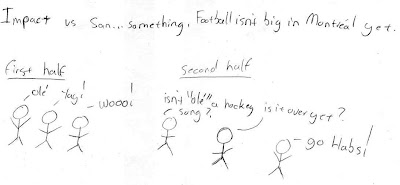 Impact vs. San... something. Football isn't big in Montréal yet.
first half
Olé
Yay!
Wooo!
second half
isn't "olé" a hockey
song?
is it over yet?
go Habs!